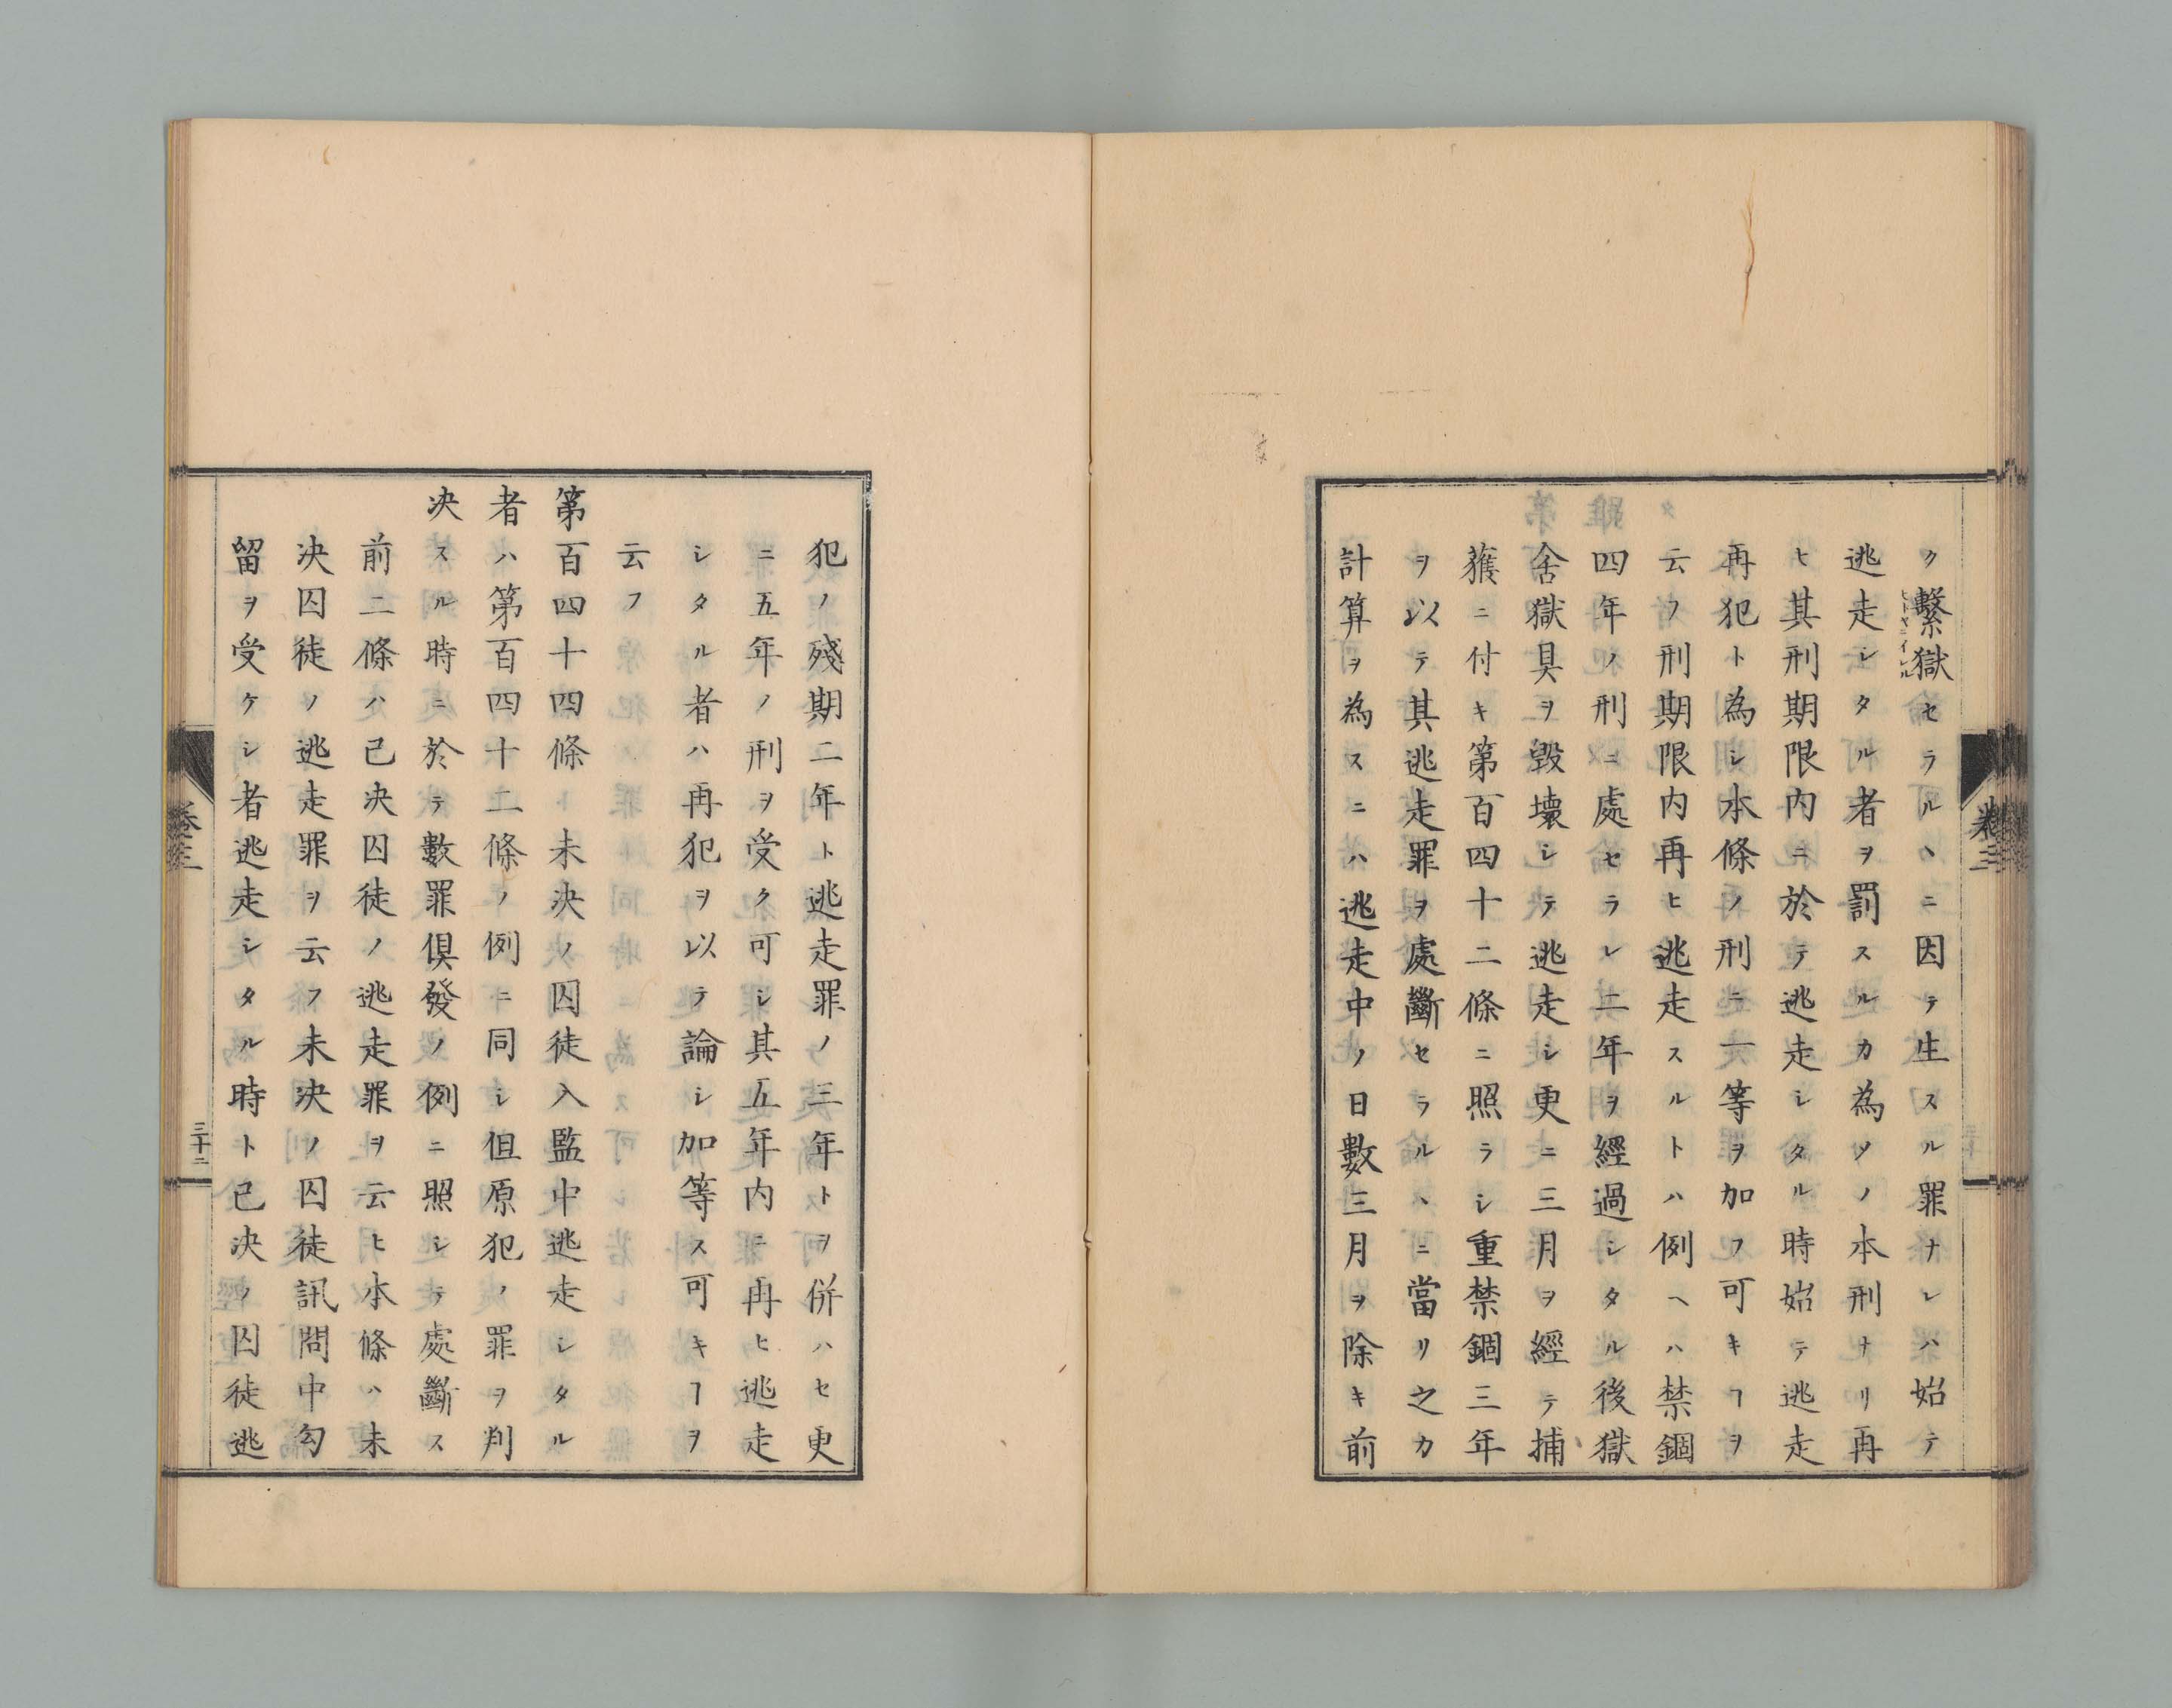 ク繫獄セラルヽニ因テ生スル罪ナレハ始テ
ヒトヤニイレル
逃走シタル者ヲ罰スルカ為メノ本刑ナリ再
ヒ其刑期限內ニ於テ逃走シタル時始テ逃走
再犯ト為シ本條ノ刑ニ一等ヲ加フ可キヿヲ
云フ刑期限內再ヒ逃走スルトハ例ヘハ禁錮
四年ノ刑ニ處セラレ二年ヲ經過シタル後獄
舍獄具ヲ毀壞シテ逃走シ更ニ三月ヲ經テ捕
獲ニ付キ第百四十二條ニ照ラシ重禁錮三年
ヲ以テ其逃走罪ヲ處斷セラルヽニ當リ之カ
計算ヲ為スニハ逃走中ノ日數三月ヲ除キ前
卷三
犯ノ殘期二年ト逃走罪ノ三年トヲ併ハセ更
ニ五年ノ刑ヲ受ク可シ其五年內ニ再ヒ逃走
シタル者ハ再犯ヲ以テ論シ加等ス可キヿヲ
云フ
第百四十四條 未決ノ囚徒入監中逃走シタル
者ハ第百四十二條ノ例ニ同シ但原犯ノ罪ヲ判
決スル時ニ於テ數罪俱發ノ例ニ照シテ處斷ス
前二條ハ已決囚徒ノ逃走罪ヲ云ヒ本條ハ未
決囚徒ノ逃走罪ヲ云フ未決ノ囚徒訊問中勾
留ヲ受ケシ者逃走シタル時ト已決ノ囚徒逃
卷三
三十二